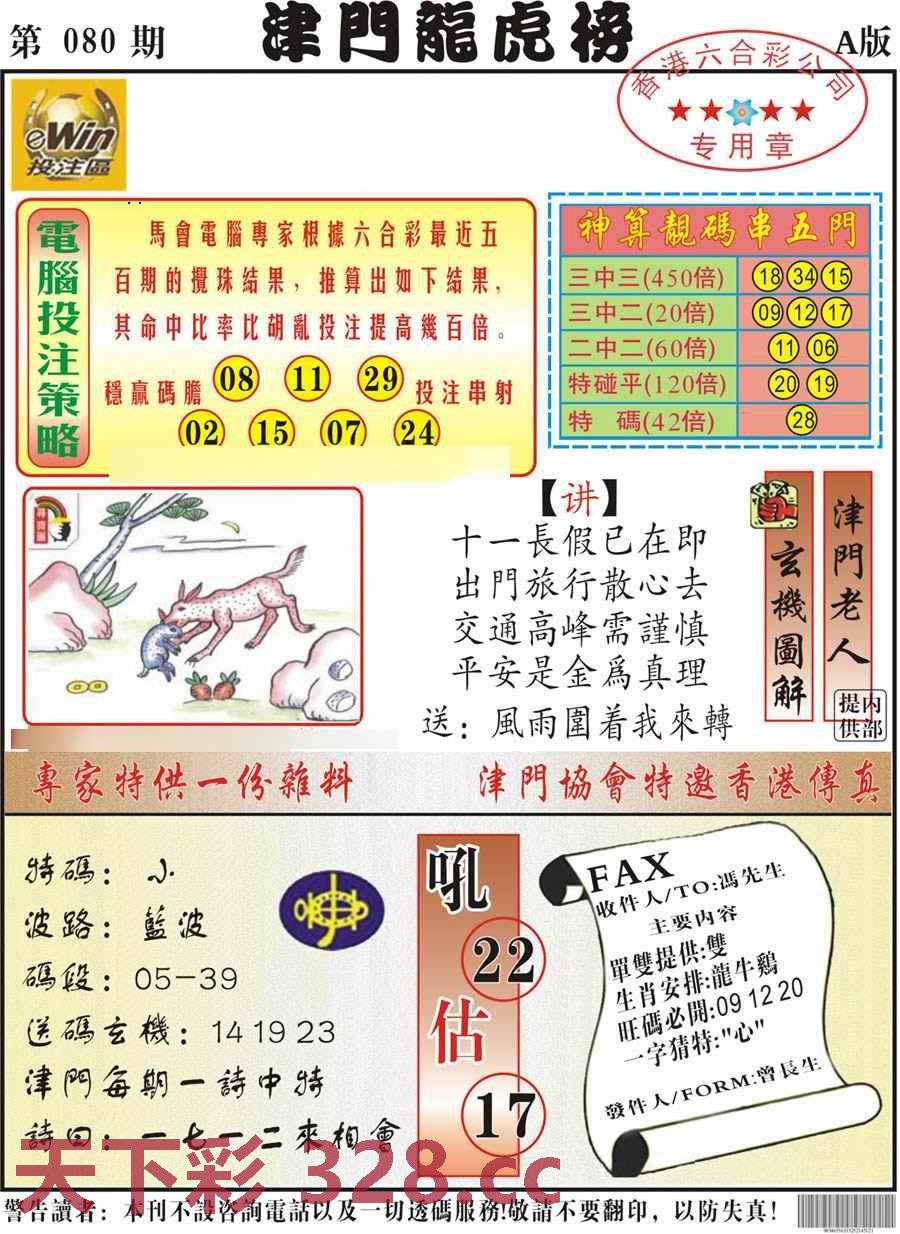 第 080 期
津門龍虎榜
A版
香港六合彩公司
专用章
eWin
投注區
電腦投注策略
馬會電腦專家根據六合彩最近五
百期的攪珠結果，推算出如下結果，
其命中比率比胡亂投注提高幾百倍。
穩贏碼膽 08 11 29 投注串射
02 15 07 24
神算靚碼串五門
三中三(450倍) 18 34 15
三中二(20倍) 09 12 17
二中二(60倍) 11 06
特碰平(120倍) 20 19
特 碼(42倍) 28
【讲】
十一長假已在即
出門旅行散心去
交通高峰需謹慎
平安是金爲真理
送：風雨圍着我來轉
玄機圖解
津門老人
内部提供
專家特供一份雜料
津門協會特邀香港傳真
特碼：小
波路：藍波
碼段：05-39
送碼玄機：14 19 23
津門每期一詩中特
詩曰：一七一二來相會
吼
22
估
17
FAX
收件人/TO:馮先生
主要内容
單雙提供:雙
生肖安排:龍牛鷄
旺碼必開:09 12 20
一字猜特:"心"
發件人/FORM:曾長生
天下彩 328.cc
警告讀者：本刊不設咨詢電話以及一切透碼服務!敬請不要翻印，以防失真！